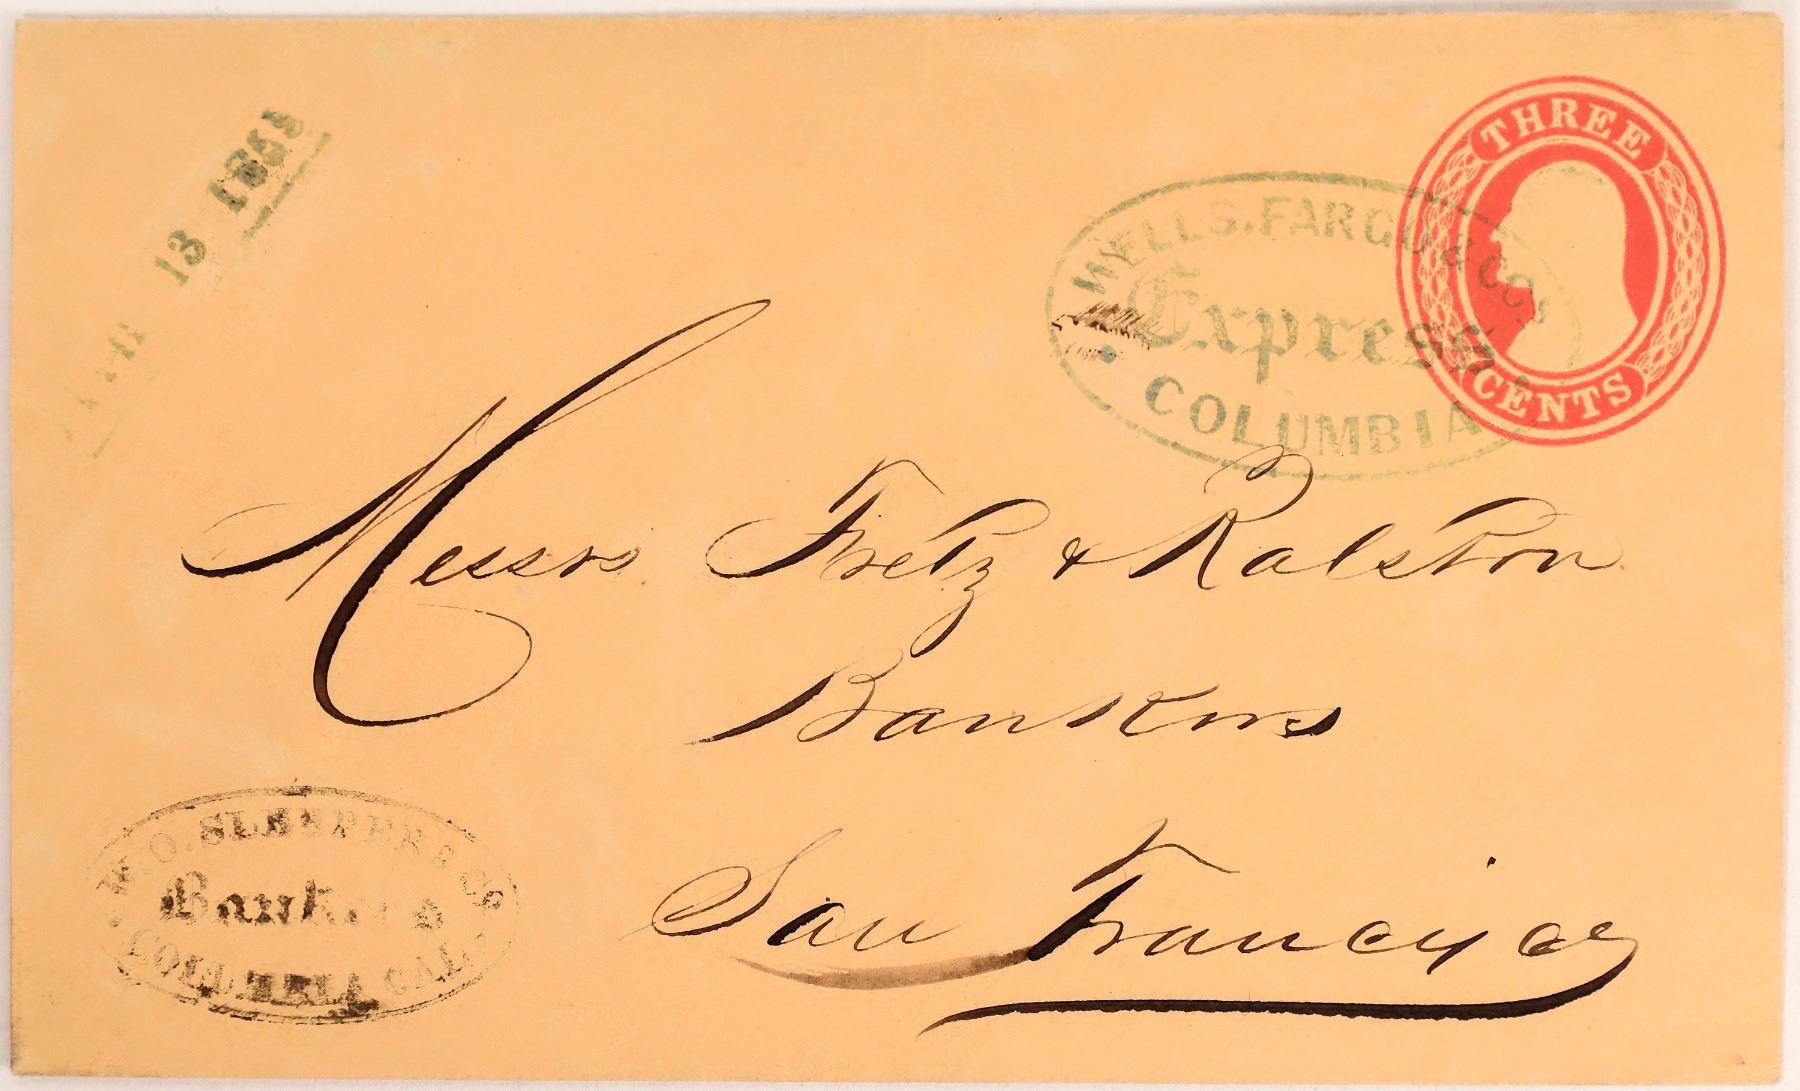 13
THREE
CENTS
WELLS. FARGO & COS
Express
COLUMBIA
Messrs Fretz & Ralston
Bankers
San Francisco
W. O. SLEEPER & CO
Bankers
COLUMBIA CAL.